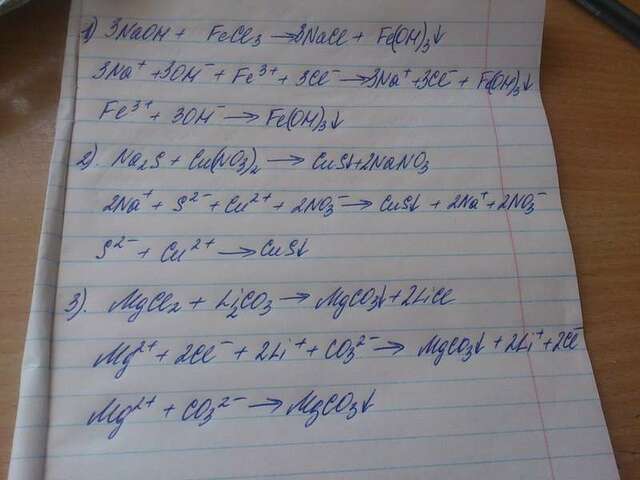 1) 3NaOH + FeCl₃ → 3NaCl + Fe(OH)₃↓
3Na⁺ + 3OH⁻ + Fe³⁺ + 3Cl⁻ → 3Na⁺ + 3Cl⁻ + Fe(OH)₃↓
Fe³⁺ + 3OH⁻ → Fe(OH)₃↓
2) Na₂S + Cu(NO₃)₂ → CuS↓ + 2NaNO₃
2Na⁺ + S²⁻ + Cu²⁺ + 2NO₃⁻ → CuS↓ + 2Na⁺ + 2NO₃⁻
S²⁻ + Cu²⁺ → CuS↓
3). MgCl₂ + Li₂CO₃ → MgCO₃↓ + 2LiCl
Mg²⁺ + 2Cl⁻ + 2Li⁺ + CO₃²⁻ → MgCO₃↓ + 2Li⁺ + 2Cl⁻
Mg²⁺ + CO₃²⁻ → MgCO₃↓